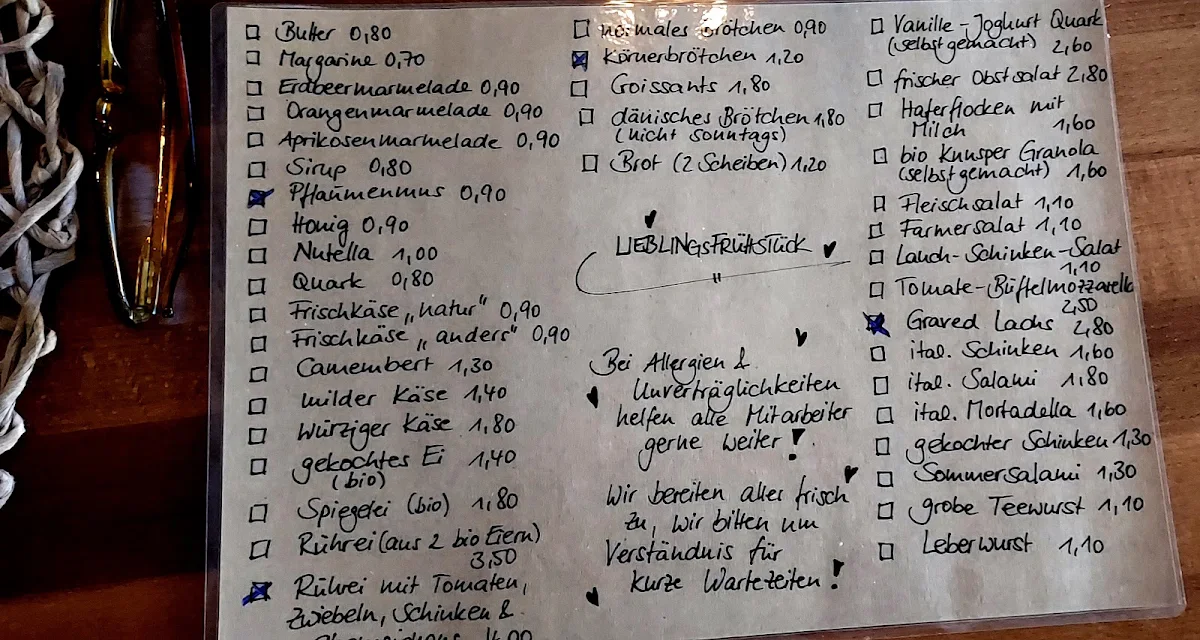 Butter 0,80
Margarine 0,70
Erdbeermarmelade 0,90
Orangenmarmelade 0,90
Aprikosenmarmelade 0,90
Sirup 0,80
Pflaumenmus 0,90
Honig 0,90
Nutella 1,00
Quark 0,80
Frischkäse „natur" 0,90
Frischkäse „anders" 0,90
Camembert 1,30
milder Käse 1,40
würziger Käse 1,80
gekochtes Ei 1,40
(bio)
Spiegelei (bio) 1,80
Rührei (aus 2 bio Eiern)
3,50
Rührei mit Tomaten,
Zwiebeln, Schinken &
normales Brötchen 0,90
Körnerbrötchen 1,20
Croissants 1,80
dänisches Brötchen 1,80
(nicht sonntags)
Brot (2 Scheiben) 1,20
LIEBLINGSFRÜHSTÜCK
Bei Allergien &
Unverträglichkeiten
helfen alle Mitarbeiter
gerne weiter!
Wir bereiten alles frisch
zu, wir bitten um
Verständnis für
kurze Wartezeiten!
Vanille-Joghurt Quark
(selbstgemacht) 2,60
frischer Obstsalat 2,80
Haferflocken mit
Milch 1,60
bio Knusper Granola
(selbstgemacht) 1,60
Fleischsalat 1,10
Farmersalat 1,10
Lauch-Schinken-Salat
1,10
Tomate-Büffelmozzarella
2,50
Graved Lachs 2,80
ital. Schinken 1,60
ital. Salami 1,80
ital. Mortadella 1,60
gekochter Schinken 1,30
Sommersalami 1,30
grobe Teewurst 1,10
Leberwurst 1,10